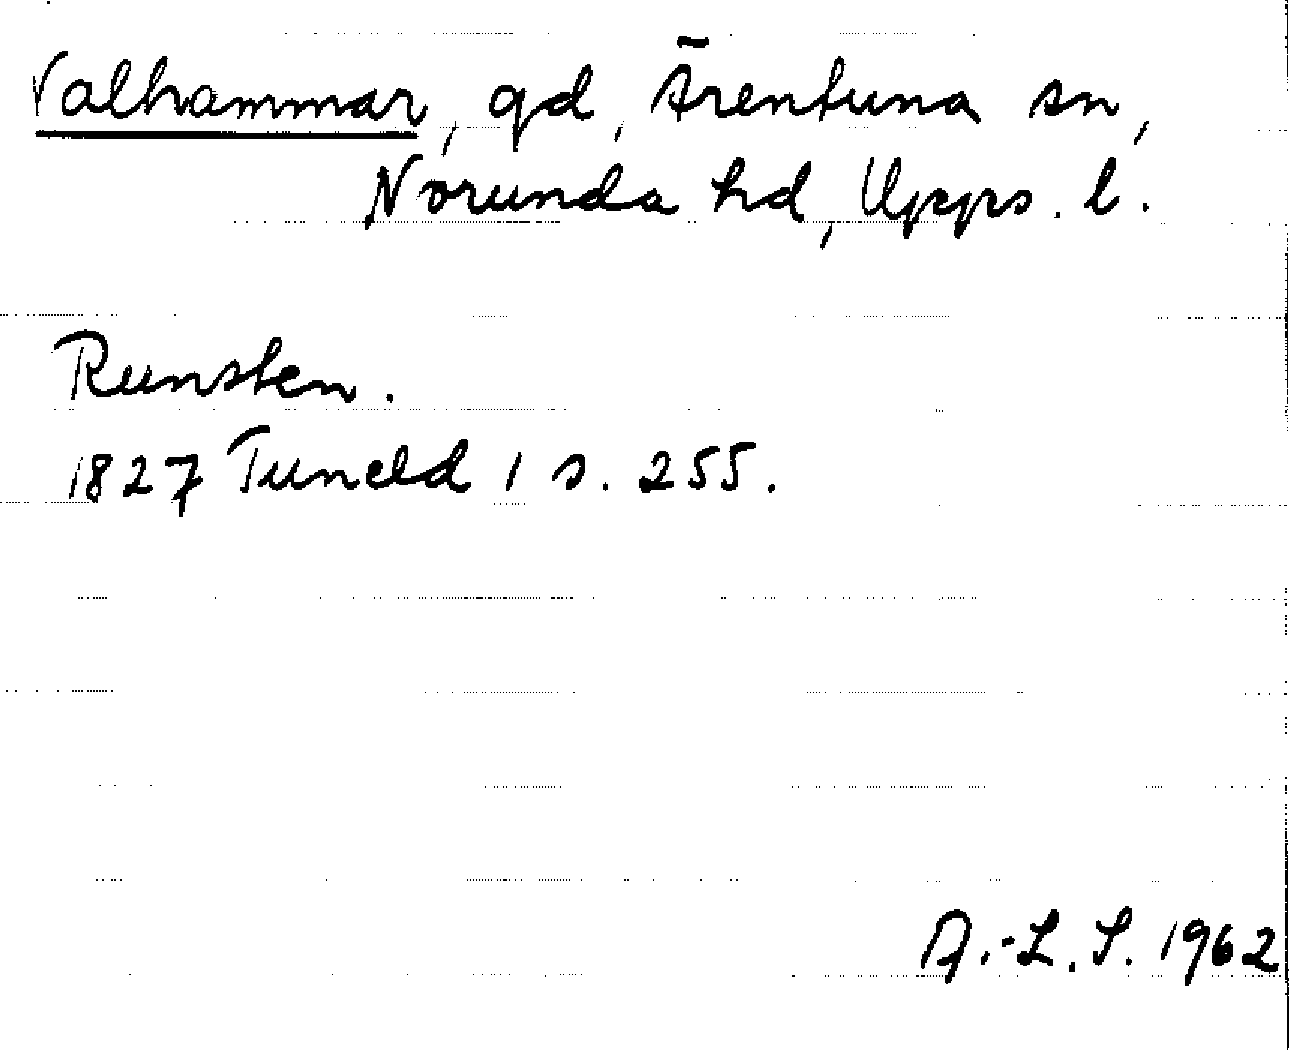 Valhammar, gd, Ärentuna sn,
Norunda hd, Upps. l.
Runsten.
1827 Tuneld 1 s. 255.
A.-L. S. 1962